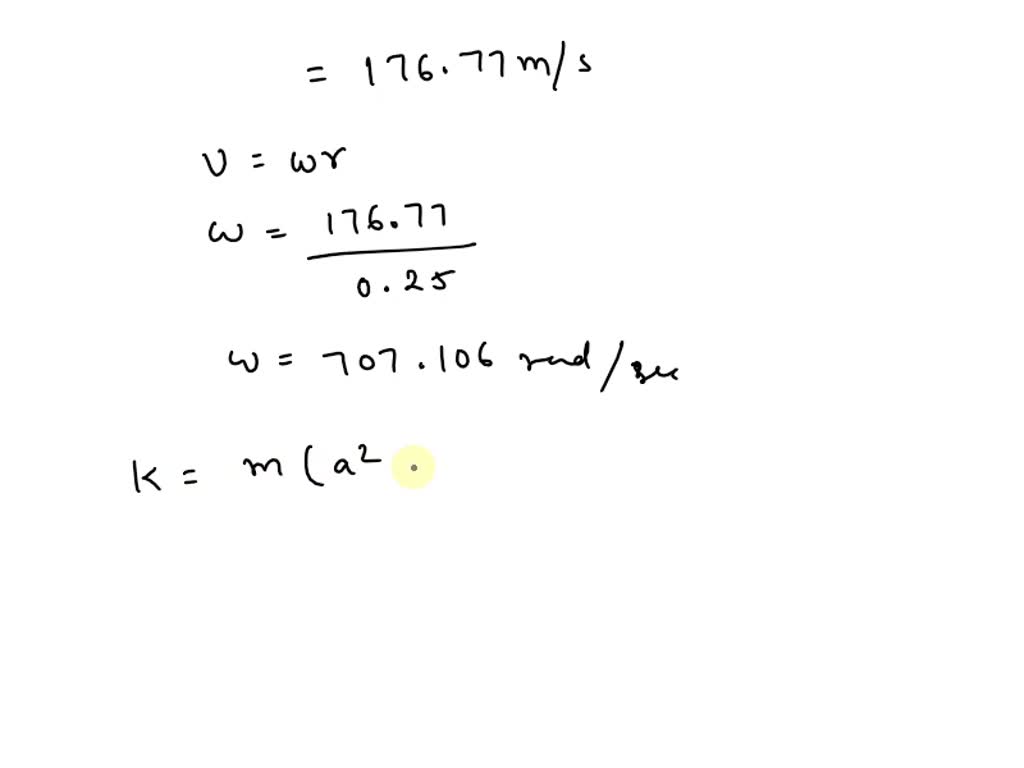 = 176.77 m/s
v = ωr
ω = 176.77
0.25
ω = 707.106 rad/sec
K = m (a²